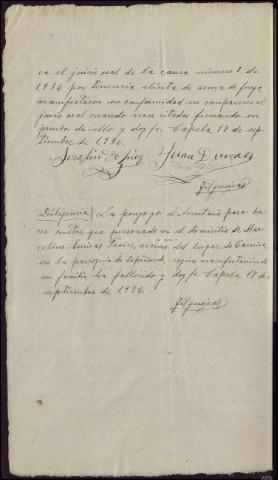 en el juicio oral de la causa número 1 de
1,936 por tenencia ilícita de armas de fuego
manifestaron su conformidad en comparecer al
juicio oral cuando sean citados firmando en
prueba de ello y doy fe. Capela 17 de sep-
tiembre de 1,936.
Serafín Juan
Filgueiras
Diligencia) La pongo yo el Secretario para ha-
cer constar que personado en el domicilio de Mar-
celino vecino del lugar de
en la parroquia de según manifestación de
su familia ha fallecido y doy fe. Capela 17 de
septiembre de 1,936.-
Filgueiras